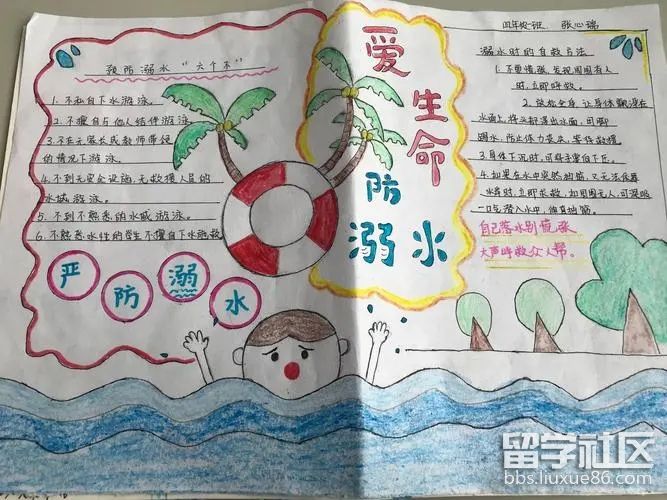 预防溺水“六个不”
1.不私自下水游泳。
2.不擅自与他人结伴游泳
3.不在无家长或教师带领
的情况下游泳。
4.不到无安全设施、无救援人员的
水域游泳。
5.不到不熟悉的水域游泳。
6.不熟悉水性的学生不擅自下水施救
严防溺水
爱生命
防溺水
班 张心瑞
溺水时的自救方法
1.不要慌张,发现周围有人
时,立即呼救。
2.放松全身,让身体飘浮在
水面上,将头部浮出水面,用脚
踢水,防止体力丧失,等待救援
3.身体下沉时,可将手掌向下压。
4.如果在水中突然抽筋,又无法靠
岸时,立即求救。如周围无人,可深吸
一口气潜入水中,伸直抽筋
自己落水别慌张
大声呼救众人帮。
留学社区
bbs.liuxue86.com